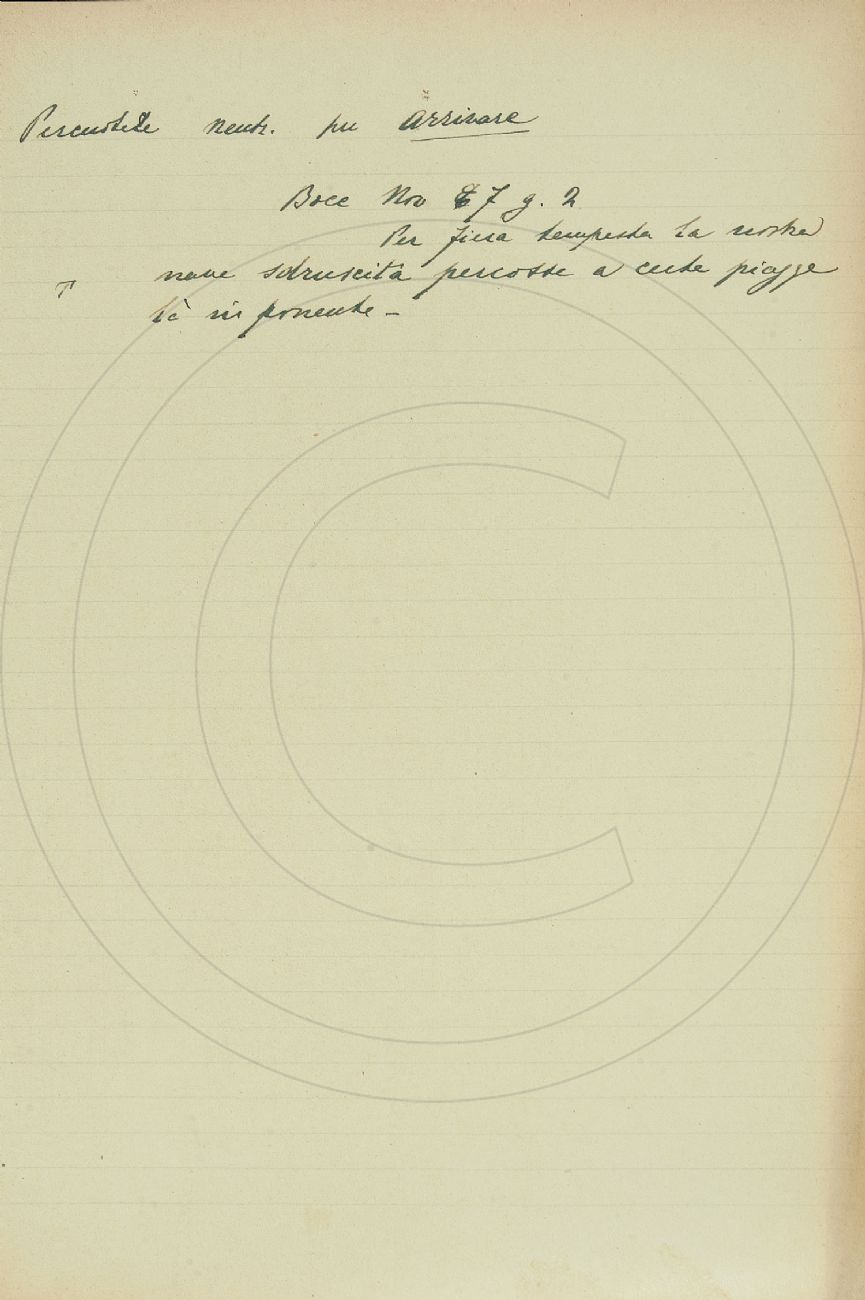 Percuotere neutr. per Arrivare
Bocc Nov 7 g. 2
Per fiera tempesta la nostra
nave sdruscita percosse a certe piagge
là in ponente -